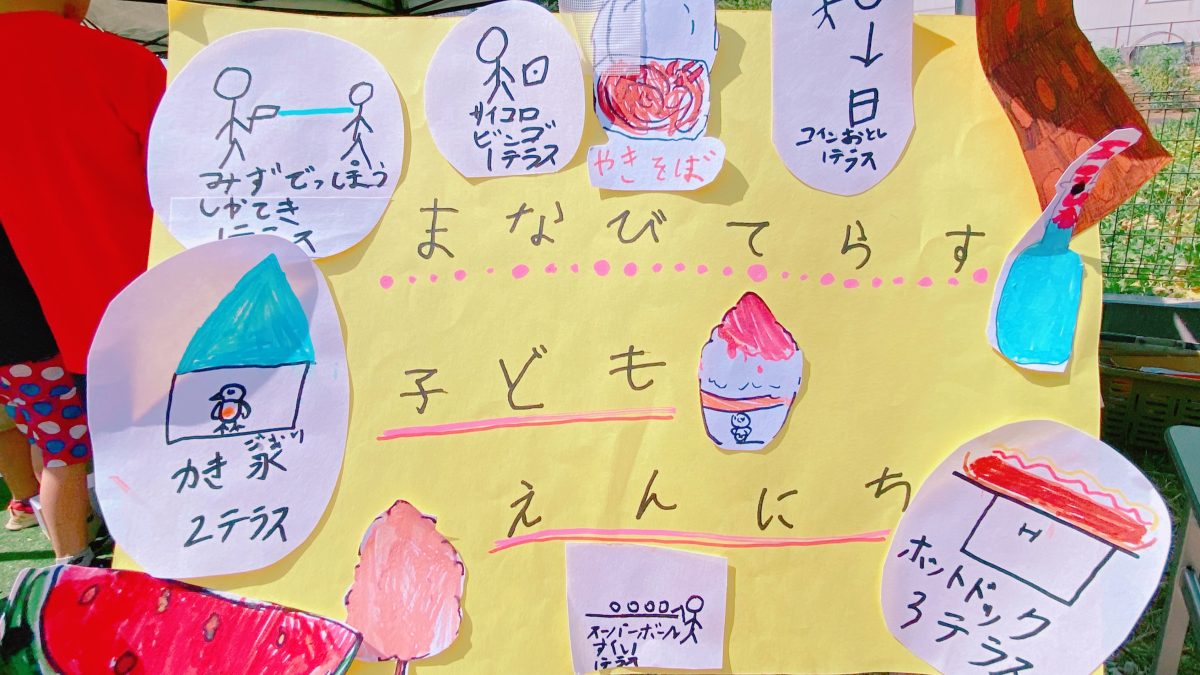 みずでっぽう
しゃてき
1テラス
サイコロ
ビンゴ
1テラス
やきそば
コインおとし
1テラス
まなびてらす
子ども
えんにち
かき氷
ごおり
2テラス
スーパーボール
すくい
1テラス
H
ホットドック
3テラス